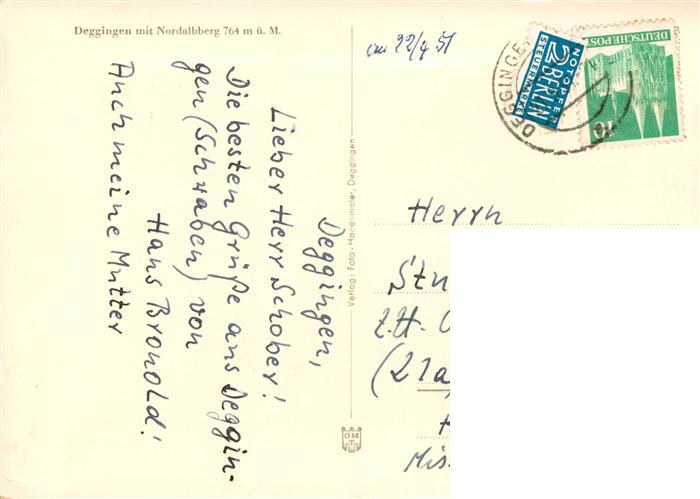 Deggingen mit Nordalbberg 764 m ü. M.
Deggingen,
Lieber Herr Schober!
Die besten Grüße aus Deggin-
gen (Schwaben) von
Hans Bronold!
Auch meine Mutter
Verlag: Foto-Hagenmaier, Deggingen
GM
22/4 51
DEGGINGE
NOTOPFER
2 BERLIN
STEUERMARKE
DEUTSCHE POST
10
Herrn
Stu
z.Zt.
(21a)
Mis